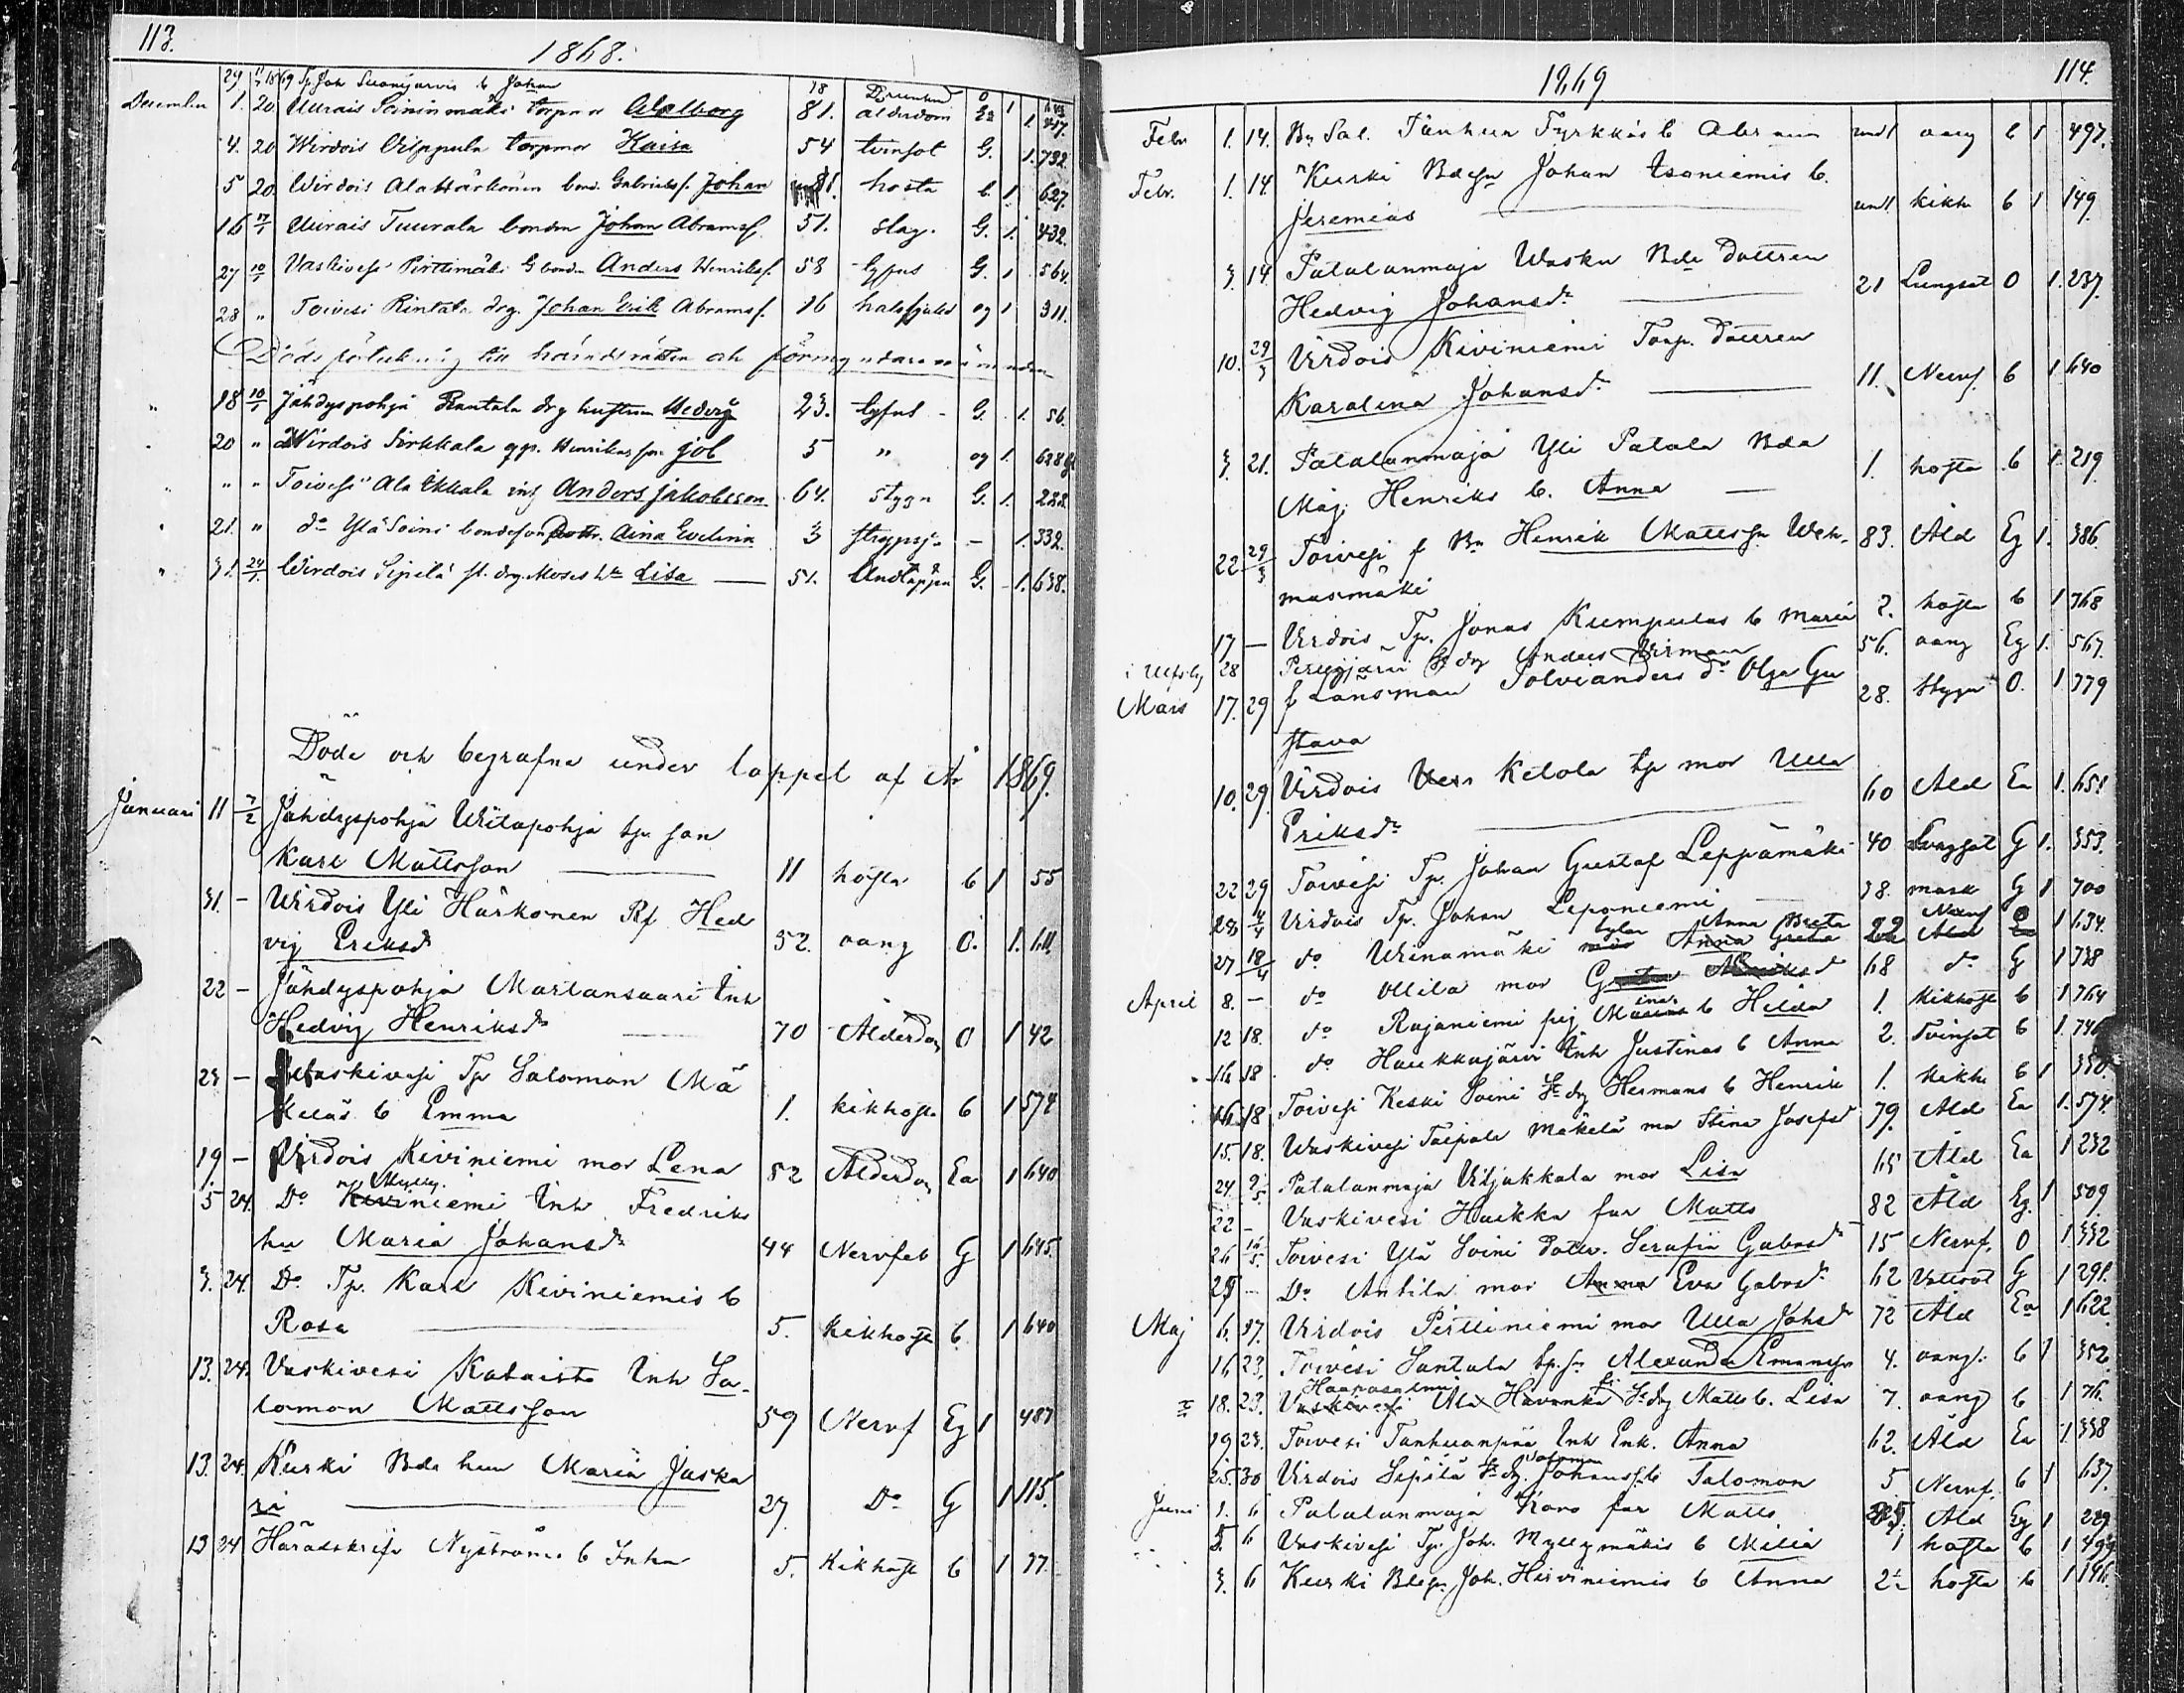 113.
1868.
29 1869 Tp. Joh Suonijärvis b Johan 18 0 1
December 1. 20 Uurais Soininmäki torpmor Walborg 81. alderdom Ea 1 417.
4. 20 Wirdois Vilppula torpmor Kaisa 54 tvinsot G. 1. 792.
5 20. Wirdois Ala Härkönen bond. Gabrielss. Johan 81. hosta b 1. 627.
16 17/1 Uurais Tuurala bonden Johan Abramss. 51. slag. G. 1. 432.
27 10/1 Vaskivesi Pirttimäki G bonden Anders Henrikss. 58 tyfus G. 1 564.
28 " Toivesi Rintala drg. Johan Erik Abramss. 16 halssjuka og 1 311.
Döds förteckning till häradsrätten och förmyndarenämnden
" 18 10/1 Jähdyspohja Rantala drg hustrun Hedvig 23. tyfus - G. 1. 56.
" 20 " Wirdois Sirkkala gp. Henriks son Job 5 " og 1. 628
" " Toivesi Ala Ikkala inh Anders Jakobsson 64. stygn G. 1. 288
" 21. " do Ylä Soini bondeson Dottr. Aina Evelina 3 strypsj. - 1. 332.
" 31. 24/1. Wirdois Sipilä st. drg. Moses h. Lisa — 51. Andtäppa G. - 1. 638.
Döde och begrafne under loppet af År 1869.
Januari 11 7/2 Jähdyspohja Wiitapohja tp. son
Karl Mattsson — 11 hosta b 1 55
31. - Wirdois Yli Härkönen Pf. Hed
vig Eriksdr 52. aang O. 1. 611.
22 - Jähdyspohja Martansaari Inh
Hedvig Henriksdr — 70 Ålderdom O 1 42
23 - Vaskivesi Tp Salomon Mä
keläs b Emma 1. kikhosta b 1 574
19. - Virdois Kiviniemi mor Lena 82 Ålderdom Ea 1 640
5 24. Do Mylly. Kiviniemi Inh Fredriks
hu Maria Johansdr 44 Nervfeb G 1 645.
3. 24. Do Tp. Karl Kiviniemis b
Rosa — 5. kikhosta b. 1 640
13. 24. Vaskivesi Kataisto Inh Sa-
lomon Mattsson 59 Nervf Eg 1 487
13. 24. Kurki Bde hu Maria Jaska
ri — 27. Do G 1 115.
13 24 Häradskrifv Nyströms b Inha 5. Kikhosta b 1 77.
1869.
114.
Febr 1. 14. Bn Sal. Tanhua Tyrkkös b Abram und1 aang b 1 497.
Febr. 1. 14 Kurki Bdesn Johan Isoniemis b.
Jeremias — und1 kikh b 1 149.
3. 14 Patalanmaja Wasku Bde dottren
Hedvig Johansdr — 21 Lungsot O 1. 237.
10. 29/3 Virdois Kiviniemi Torp. dottren
Karalina Johansdr — 11. Nervf b 1 640
3 21. Patalanmaja Yli Patala Bda
Maj Henriks b. Anna — 1. hosta b 1. 219
22 29/3 Toivesi f Bn Henrik Mattsson Weh- 83. Åld Eg 1. 386.
masmäki
17 — Virdois Tp. Jonas Kumpulas b Maria 2. hosta b 1 768
28 Perugjärvi St dg Anders Virman 56. aang Eg 1. 567.
Mars 17. 29 f Länsman Polvianders dr Olga Gu 28. stygn O. 1. 779
stava
10. 29. Virdois Ketola tp mor Ulla
Eriksdr — 60 Åld Ea 1. 651
22 29 Toivesi Tp. Johan Gustaf Leppämäki 40 Lungsot G 1. 353.
28 4/4 Virdois Tp. Johan Leponiemi — 38. mask G 1 700
27 18/4 do Uinamäki Anna Greta Anna Greta 22 Nervf Åld O 1 634.
April 8. - do Ollila mor 68 do G 1 738
12 18. do Rajaniemi pig b Hilda 1. kikhosta b 1 764
16 18 do Haukkajärvi Inh Justinas b Anna 2. Tvinsot b 1. 746
16 18 Toivesi Keski Soini St dg Hermans b Henrik 1. kikh b 1 330.
15. 18. Waskivesi Taipale Mäkelä mor Stina Josefsd 79. Åld Ea 1. 574.
24. 9/5 Patalanmaja Viljakkala mor Lisa 65 Åld Ea 1 232
22 - Vaskivesi Haikka far Matts 82 Åld Eg. 1 509.
26 16/5. Toivesi Ylä Soini dottr. Serafia Gabrsdr 15 Nervf. O 1. 332
29 - Do Antila mor Anna Eva Gabrsdr. 62 Vattsot G 1 291.
Maj 6. 17. Virdois Pirttiniemi mor Ulla Johsdr 72 Åld Ea 1 622.
16. 23. Toivesi Santala tp. sn Alexander Emanss 4. aang. b 1 352
18. 23. Haapasalmi Vaskivesi Ala Havanka St dg Matts b. Lisa 7. aang b 1 76.
19 23. Toivesi Tanhuanpää Inh Enk. Anna 62. Åld Ea 1. 338
25. 30 Virdois Sipilä St dg. Johans b Salomon 5. Nervf. b 1 637.
Juni 1. 6 Patalanmaja Koro far Matts Åld Eg 1 229.
5. 6 Vaskivesi Tp. Joh. Myllymäkis b Milia 1 hosta b 1 499
3. 6 Kurki Bdesn Joh. Hirviniemis b Anna 2½ hosta b 1 146.